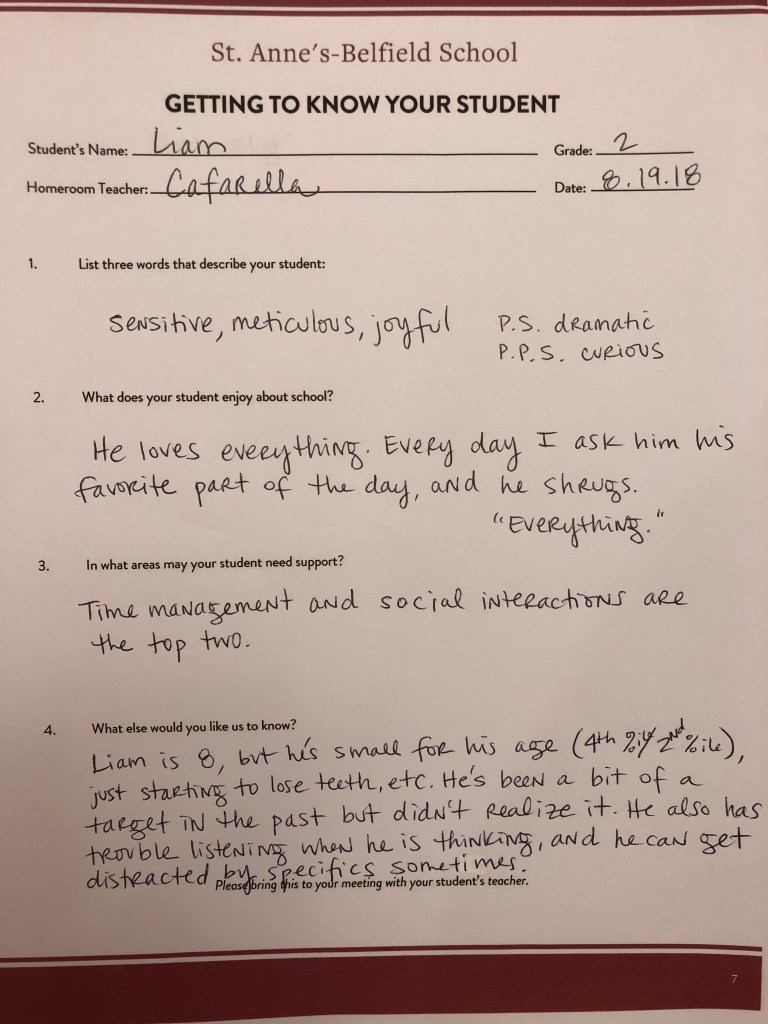 St. Anne's-Belfield School
GETTING TO KNOW YOUR STUDENT
Student's Name: Liam
Grade: 2
Homeroom Teacher: Cafarella
Date: 8.19.18
1. List three words that describe your student:
sensitive, meticulous, joyful
P.S. dramatic
P.P.S. curious
2. What does your student enjoy about school?
He loves everything. Every day I ask him his
favorite part of the day, and he shrugs.
"Everything."
3. In what areas may your student need support?
Time management and social interactions are
the top two.
4. What else would you like us to know?
Liam is 8, but he's small for his age (4th %ile/2nd %ile),
just starting to lose teeth, etc. He's been a bit of a
target in the past but didn't realize it. He also has
trouble listening when he is thinking, and he can get
distracted by specifics sometimes.
Please bring this to your meeting with your student's teacher.
7